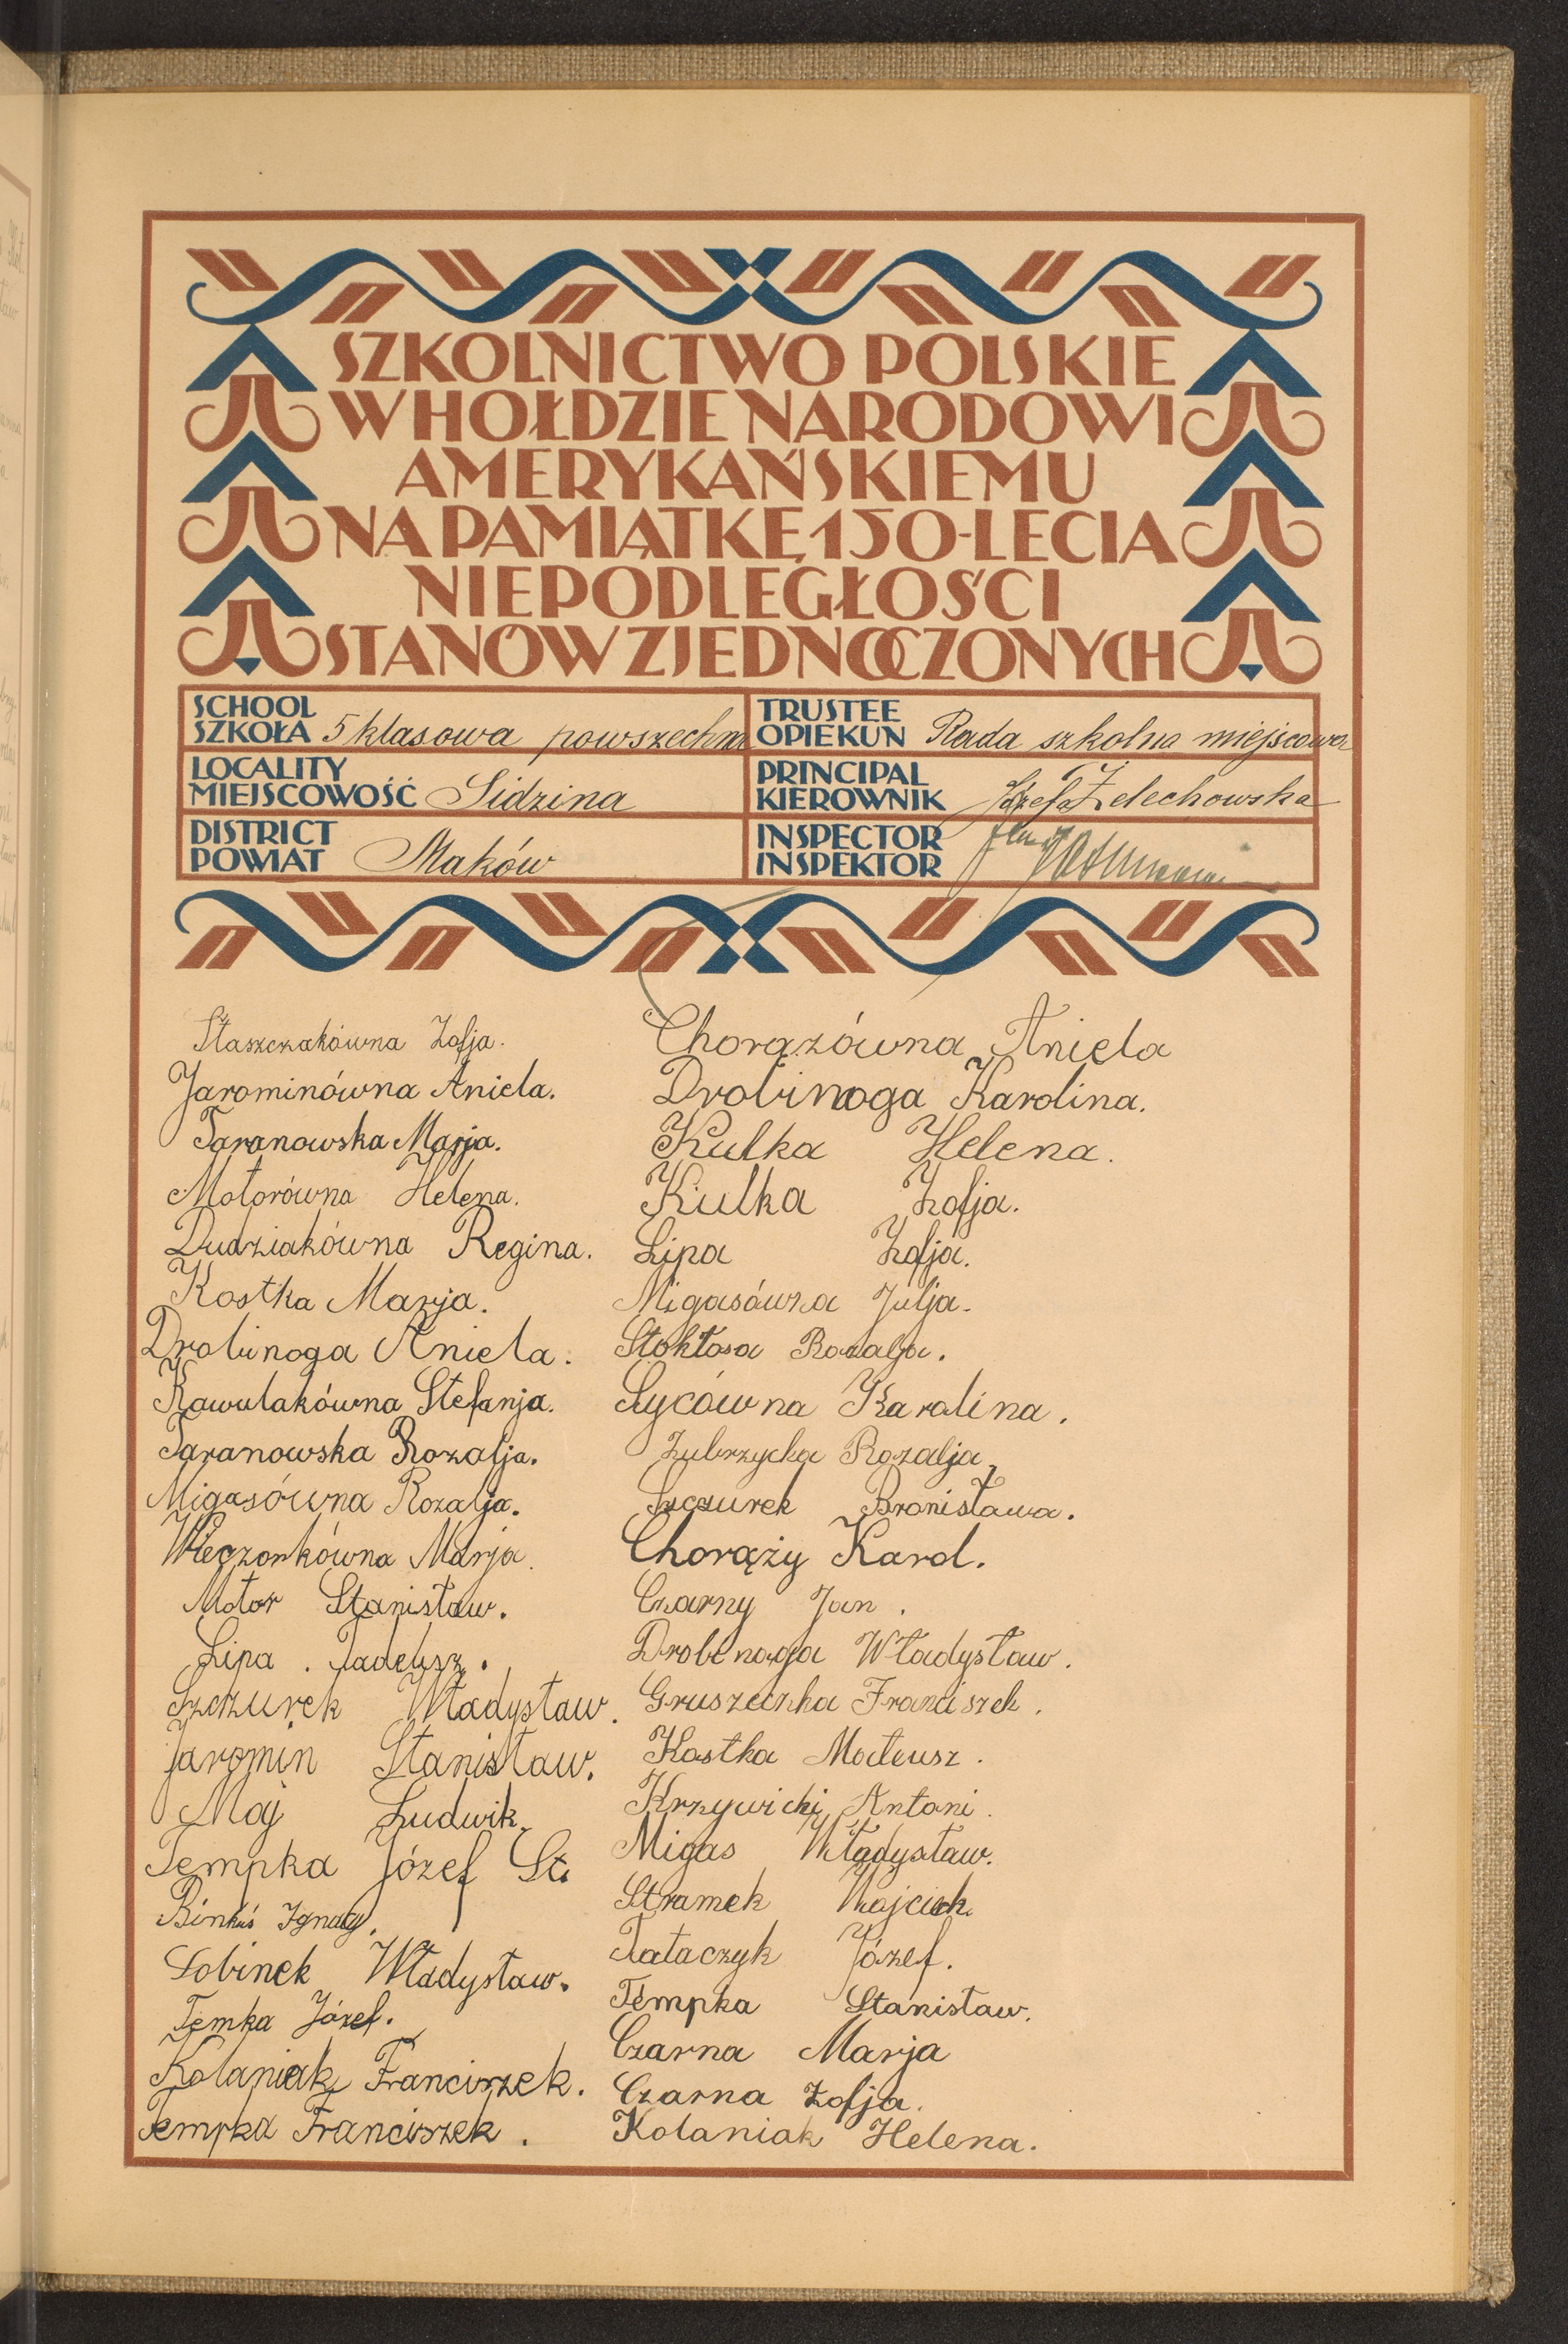 SZKOLNICTWO POLSKIE
W HOŁDZIE NARODOWI
AMERYKAŃSKIEMU
NA PAMIĄTKĘ 150-LECIA
NIEPODLEGŁOŚCI
STANÓW ZJEDNOCZONYCH
SCHOOL
SZKOŁA 5 klasowa powszechna
TRUSTEE
OPIEKUN Rada szkolna miejscowa
LOCALITY
MIEJSCOWOŚĆ Sidzina
PRINCIPAL
KIEROWNIK Józefa Żelechowska
DISTRICT
POWIAT Maków
INSPECTOR
INSPEKTOR
Staszczakówna Zofja.
Jarominówna Aniela.
Taranowska Marja.
Motorówna Helena.
Dudziakówna Regina.
Kostka Marja.
Drobinoga Aniela.
Kawulakówna Stefanja.
Taranowska Rozalja.
Migasówna Rozalja.
Wieczorkówna Marja.
Motor Stanisław.
Lipa. Tadeusz.
Szczurek Władysław.
Jaromin Stanisław.
Maj Ludwik.
Tempka Józef St.
Binkuś Ignacy.
Łobinek Władysław.
Temka Józef.
Kolaniak Franciszek.
Tempka Franciszek.
Chorązówna Aniela
Drobinoga Karolina.
Kulka Helena.
Kulka Zofja.
Lipa Zofja.
Migasówna Julja.
Stokłosa Rozalja.
Lycówna Karolina.
Zubrzycka Rozalja,
Szczurek Bronisława.
Chorąży Karol.
Czarny Jan.
Drobinoga Władysław.
Gruszeczka Franciszek.
Kostka Mateusz.
Krzywicki Antoni.
Migas Władysław.
Stramek Wojciech
Tataczyk Józef.
Tempka Stanisław.
Czarna Marja
Czarna Zofja.
Kolaniak Helena.